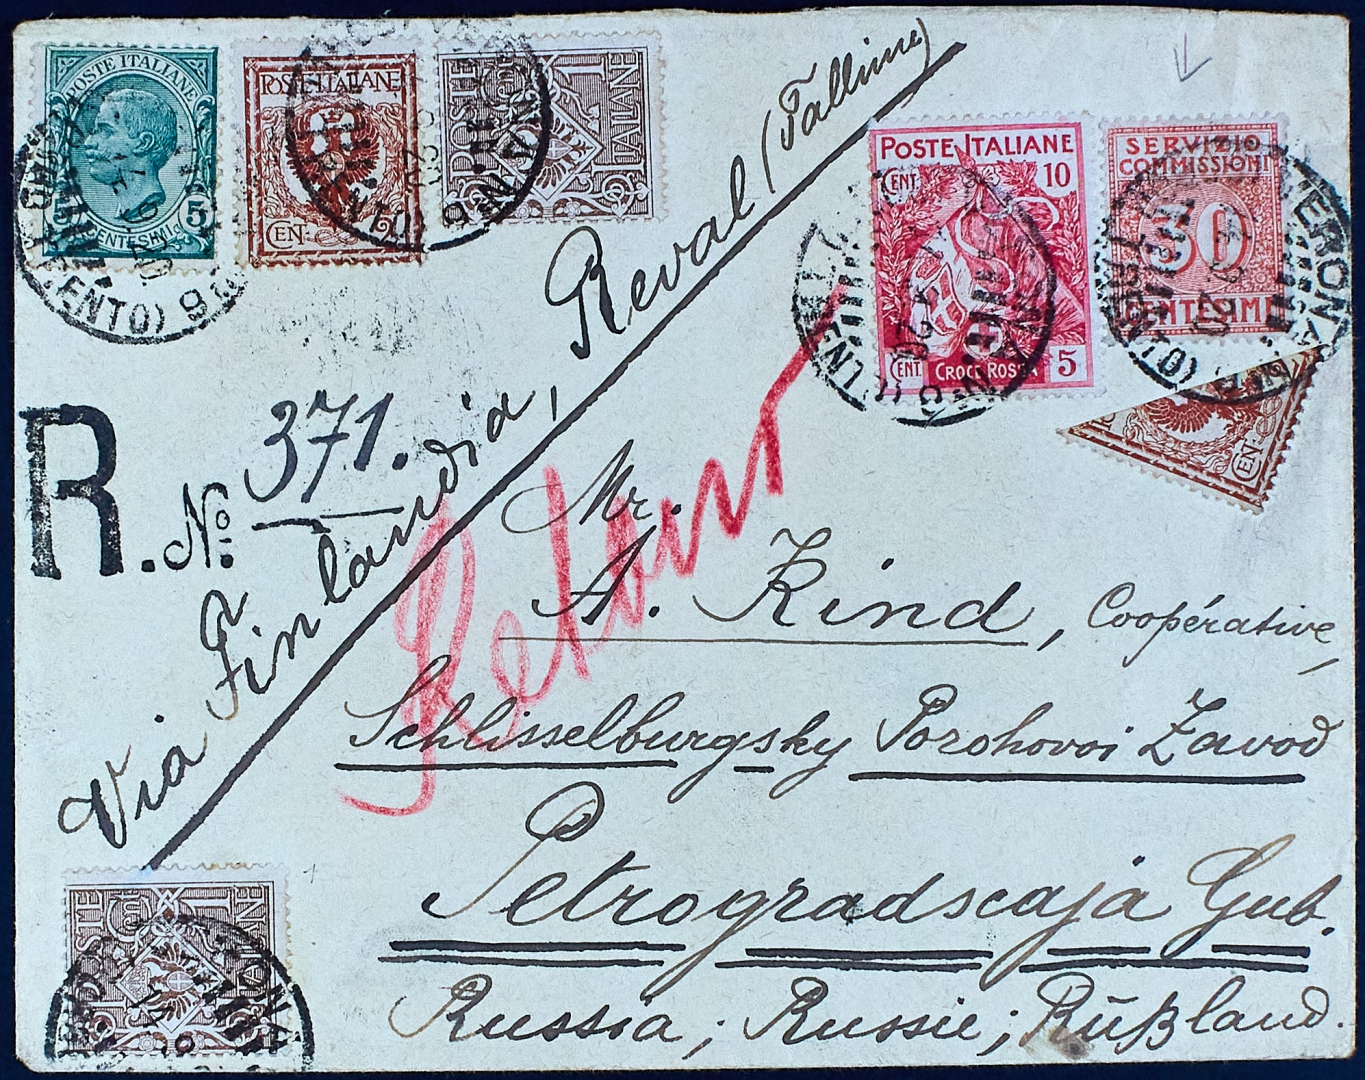 POSTE ITALIANE
5
CENTESIMI
POSTE ITALIANE
CEN.
POSTE
ITALIANE
Cent
1
(TRENTO)
POSTE ITALIANE
CENT. 10
CENT. 5
CROCE ROSSA
SERVIZIO
COMMISSIONI
30
CENTESIMI
VERONA
(TRENTO)
CEN.
R. No. 371.
Via Finlandia, Reval (Tallinn)
Retour
Mr.
A. Kind, Coopérative,
Schlisselburgsky Porohovoi Zavod
Petrogradscaja Gub.
Russia; Russie; Rußland.
POSTE
ITALIANE
Cent
1